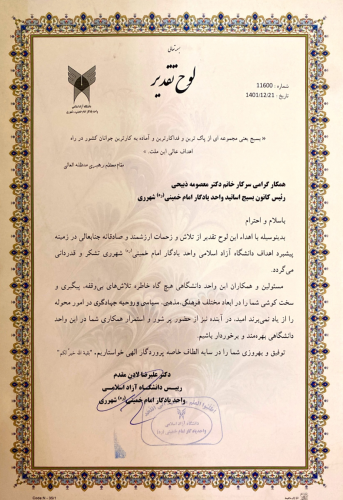 بسمه تعالی
لوح تقدیر
شماره : 11600
تاریخ : 1401/12/21
دانشگاه آزاد اسلامی
واحد یادگار امام خمینی(ره) شهرری
« بسیج یعنی مجموعه ای از پاک ترین و فداکارترین و آماده به کارترین جوانان کشور در راه
اهداف عالی این ملت. »
مقام معظم رهبری مدظله العالی
همکار گرامی سرکار خانم دکتر معصومه ذبیحی
رئیس کانون بسیج اساتید واحد یادگار امام خمینی(ره) شهرری
باسلام و احترام
بدینوسیله با اهداء این لوح تقدیر از تلاش و زحمات ارزشمند و صادقانه جنابعالی در زمینه
پیشبرد اهداف دانشگاه آزاد اسلامی واحد یادگار امام خمینی(ره) شهرری تشکر و قدردانی
می گردد.
مسئولین و همکاران این واحد دانشگاهی هیچ گاه خاطره تلاش‌های بی‌وقفه، پیگیری و
سخت کوشی شما را در ابعاد مختلف فرهنگی،مذهبی، سیاسی و روحیه جهادگری در امور محوله
را از یاد نمی‌برند امید، در آینده نیز از حضور پر شور و استمرار همکاری شما در این واحد
دانشگاهی بهره‌مند و برخوردار باشیم.
توفیق و بهروزی شما را در سایه الطاف خاصه پروردگار الهی خواستاریم. "بقیة الله خیر لکم"
دکتر علیرضا لادن مقدم
رییس دانشگاه آزاد اسلامی
واحد یادگار امام خمینی(ره) شهرری
دانشگاه آزاد اسلامی
واحد یادگار امام خمینی (ره)